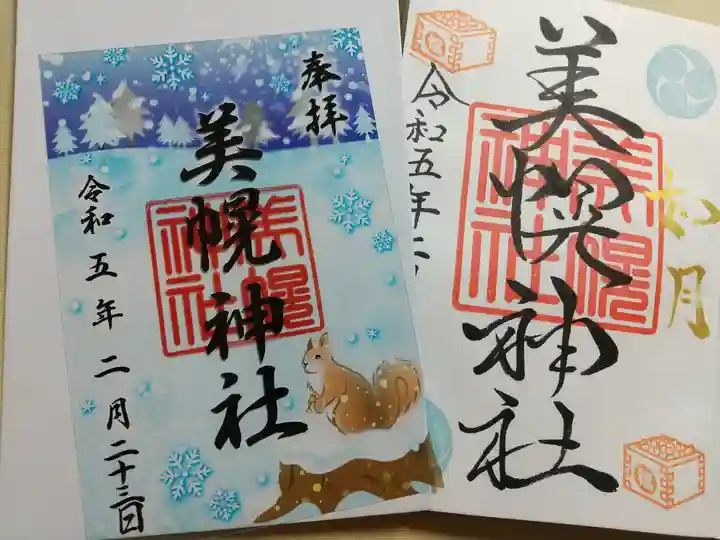 奉拝
美幌神社
令和五年二月二十三日
美幌神社
如月
美幌神社
令和五年二
美幌神社